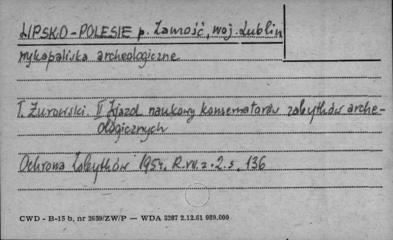 LIPSKO-POLESIE p. Zamość, woj. Lublin
wykopaliska archeologiczne
T. Żurowski. II Zjazd naukowy konserwatorów zabytków arche-
ologicznych
Ochrona Zabytków 1954. R. VII. z. 2. s. 136
CWD - B-15 b, nr 2659/ZW/P — WDA 3287 2.12.61 989.000